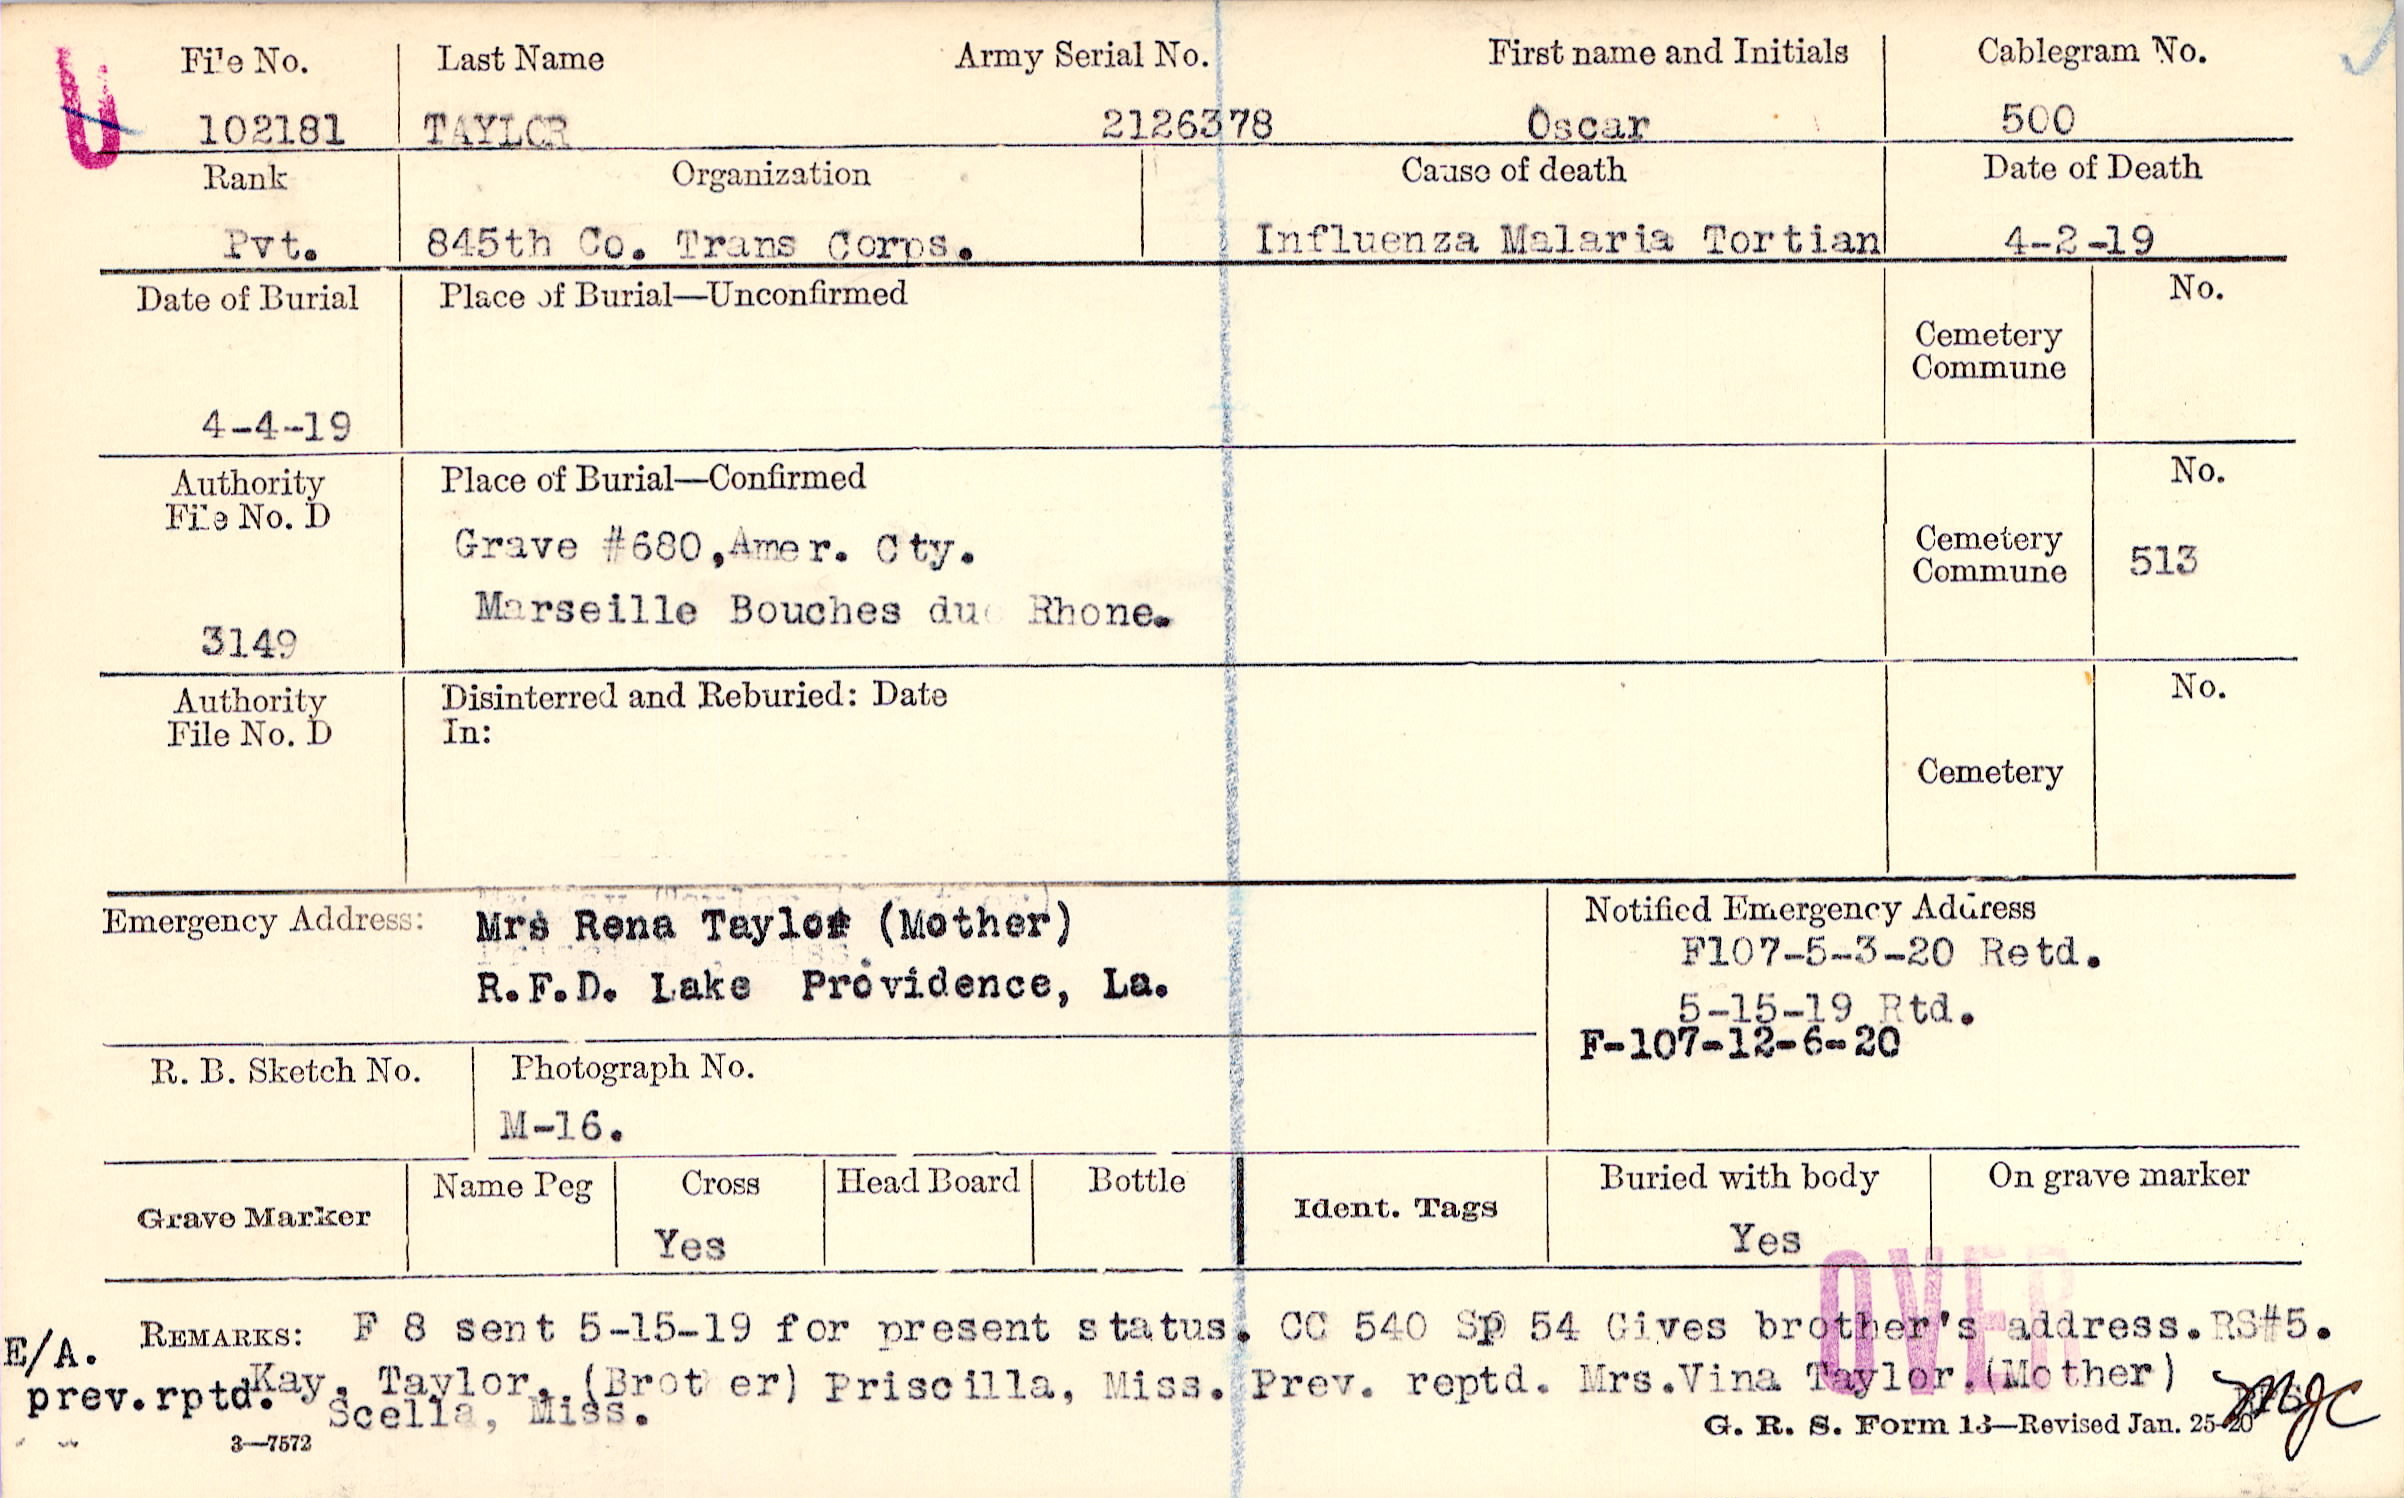 U
File No. Last Name Army Serial No. First name and Initials Cablegram No.
102181 TAYLOR 2126378 Oscar 500
Rank Organization Cause of death Date of Death
Pvt. 845th Co. Trans Corps. Influenza Malaria Tortian 4-2-19
Date of Burial Place of Burial—Unconfirmed No.
Cemetery
Commune
4-4-19
Authority Place of Burial—Confirmed No.
File No. D
Grave #680, Amer. Cty. Cemetery
Commune 513
Marseille Bouches du Rhone.
3149
Authority Disinterred and Reburied: Date No.
File No. D In:
Cemetery
Emergency Address: Mrs Rena Taylor (Mother) Notified Emergency Address
F107-5-3-20 Retd.
R.F.D. Lake Providence, La. 5-15-19 Rtd.
F-107-12-6-20
R. B. Sketch No. Photograph No.
M-16.
Grave Marker Name Peg Cross Head Board Bottle Ident. Tags Buried with body On grave marker
Yes Yes
OVER
REMARKS: F 8 sent 5-15-19 for present status. CC 540 Sp 54 Gives brother's address. RS#5.
E/A.
prev.rptd. Kay. Taylor. (Brot er) Priscilla, Miss. Prev. reptd. Mrs. Vina Taylor. (Mother)
Scella, Miss.
3—7572 G. R. S. Form 13—Revised Jan. 25-20 MJC